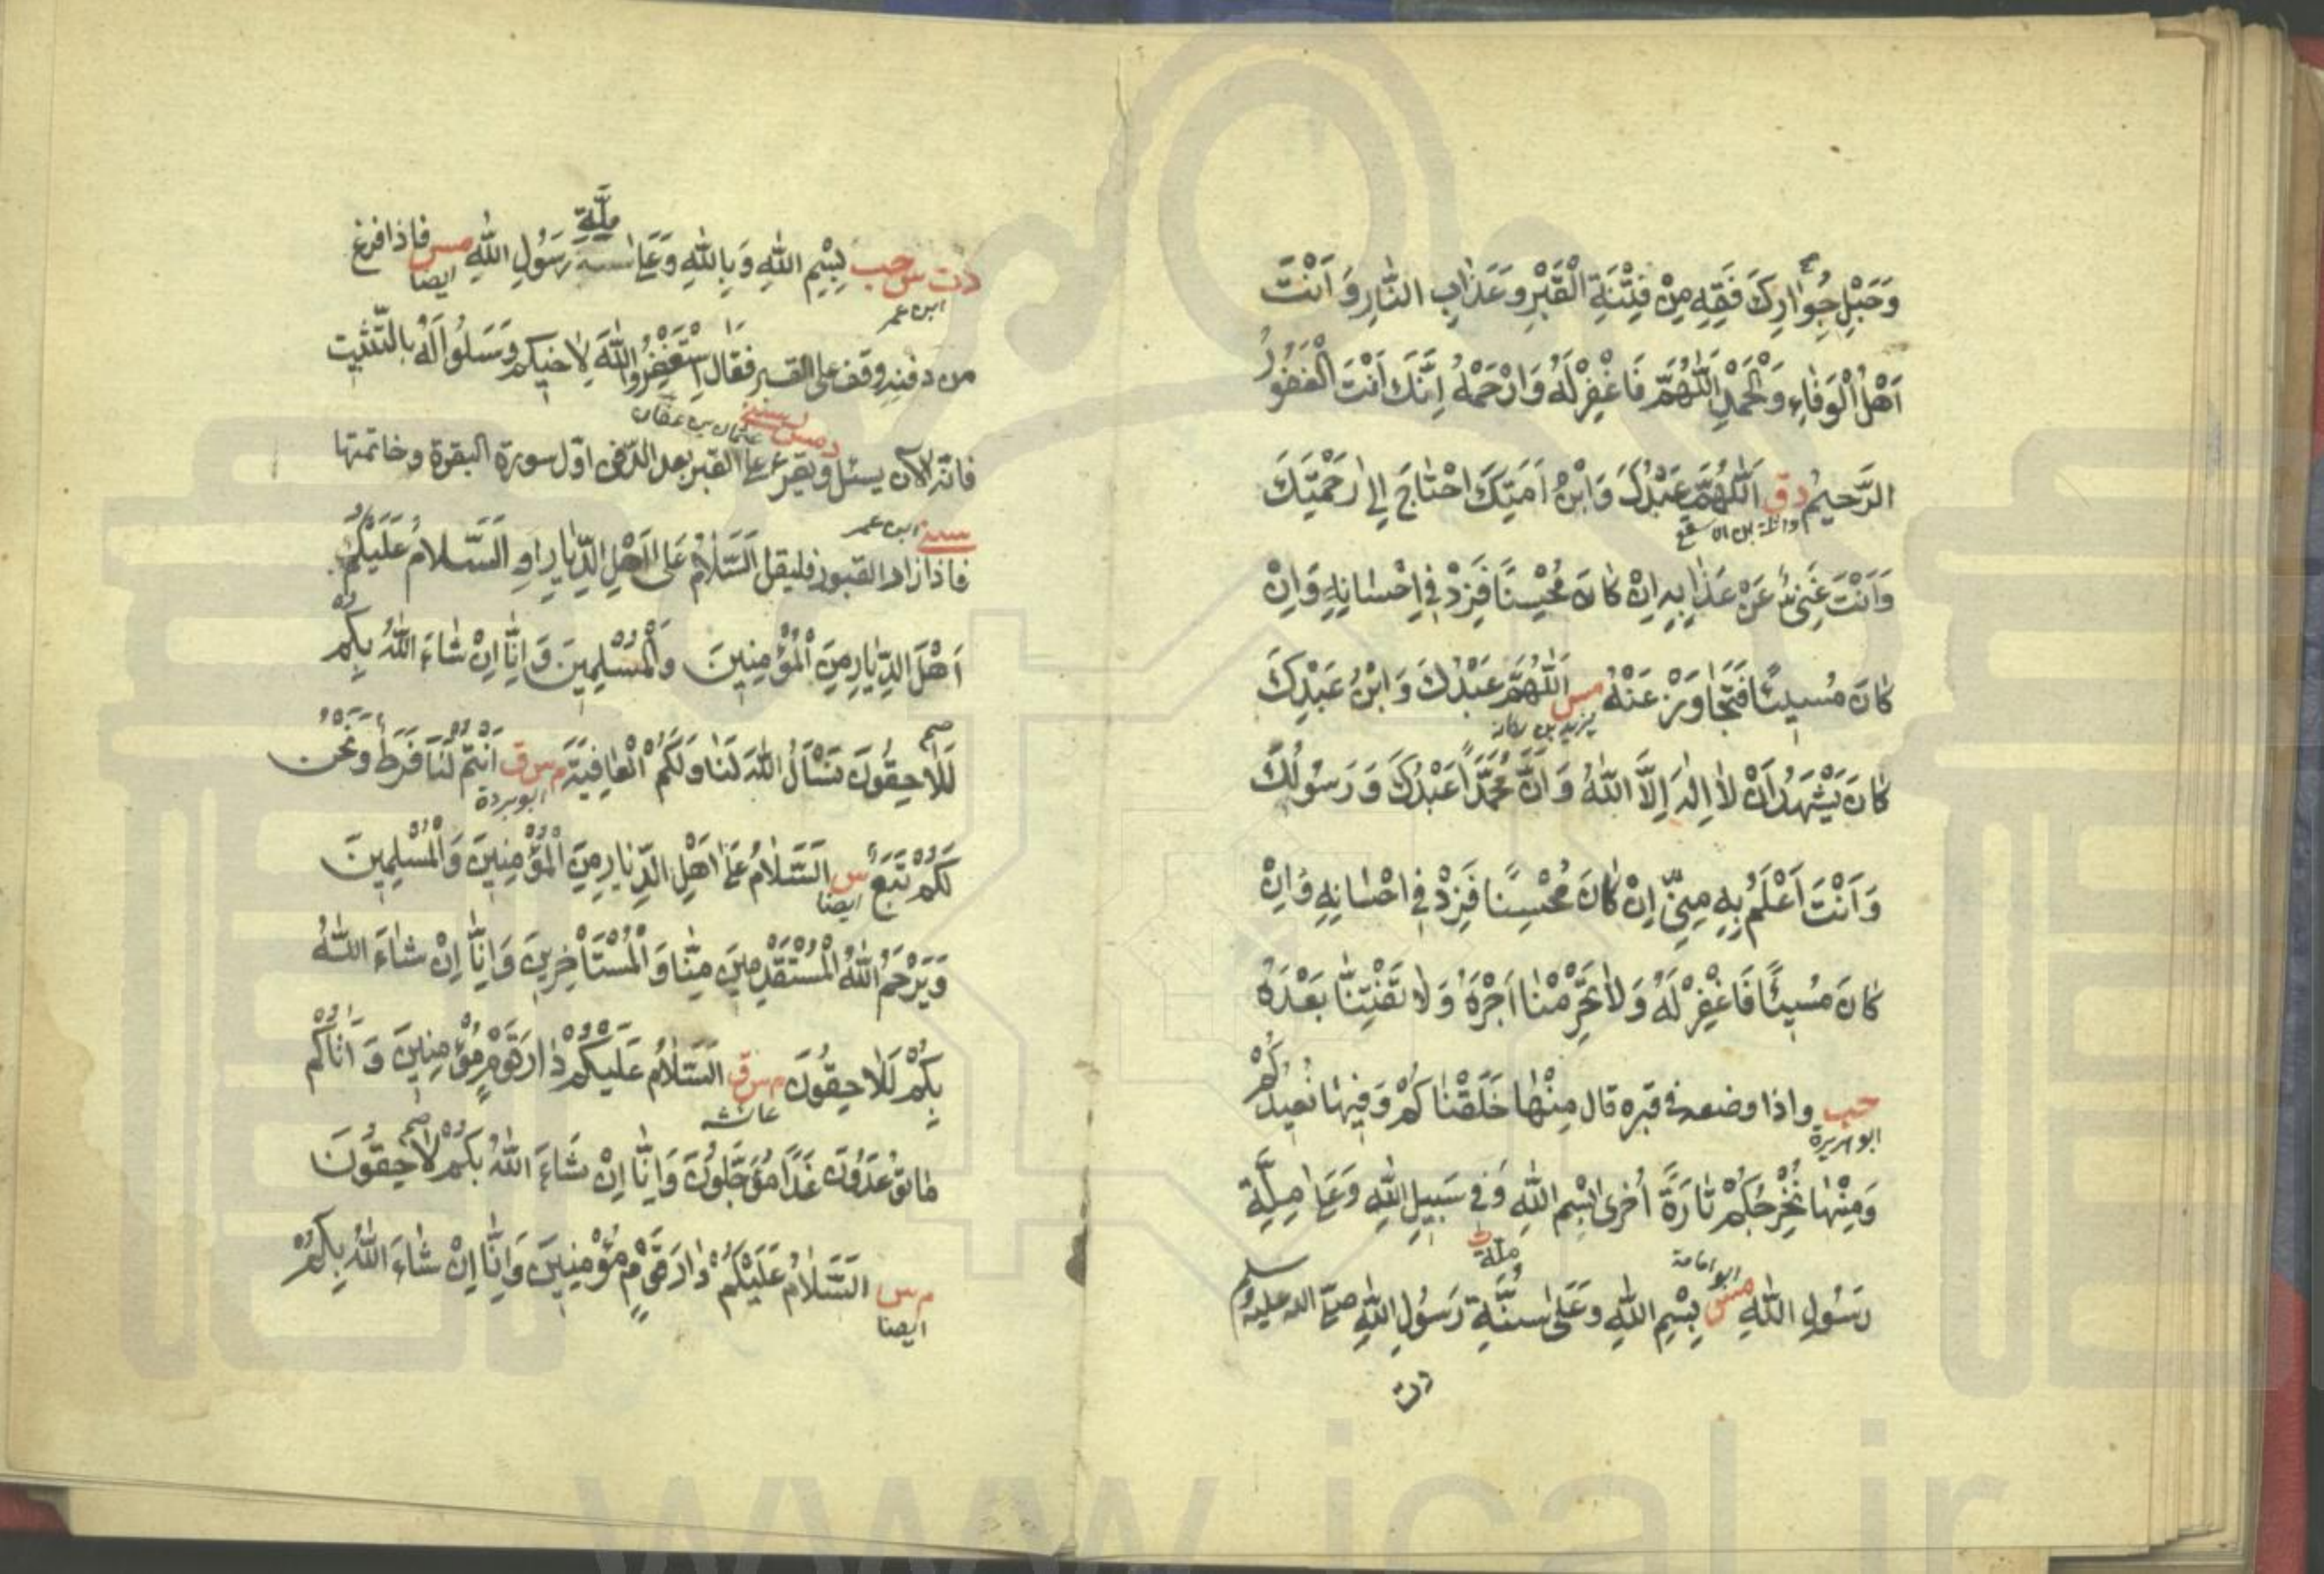 وَحَبْلِ جِوَارِكَ فَقِهِ مِنْ فِتْنَةِ الْقَبْرِ وَعَذَابِ النَّارِ وَاَنْتَ
اَهْلُ الْوَفَاءِ وَالْحَمْدِ اَللّٰهُمَّ فَاغْفِرْ لَهُ وَارْحَمْهُ اِنَّكَ اَنْتَ الْغَفُورُ
الرَّحِيمُ دق اَللّٰهُمَّ عَبْدُكَ وَابْنُ اَمَتِكَ احْتَاجَ اِلٰى رَحْمَتِكَ
واثلة بن الاسقع
وَاَنْتَ غَنِيٌّ عَنْ عَذَابِهِ اِنْ كَانَ مُحْسِنًا فَزِدْ فِي اِحْسَانِهِ وَاِنْ
كَانَ مُسِيئًا فَتَجَاوَزْ عَنْهُ مس اَللّٰهُمَّ عَبْدُكَ وَابْنُ عَبْدِكَ
يزيد بن ركانة
كَانَ يَشْهَدُ اَنْ لَا اِلٰهَ اِلَّا اللّٰهُ وَاَنَّ مُحَمَّدًا عَبْدُكَ وَرَسُولُكَ
وَاَنْتَ اَعْلَمُ بِهِ مِنِّي اِنْ كَانَ مُحْسِنًا فَزِدْ فِي اِحْسَانِهِ وَاِنْ
كَانَ مُسِيئًا فَاغْفِرْ لَهُ وَلَا تَحْرِمْنَا اَجْرَهُ وَلَا تَفْتِنَّا بَعْدَهُ
حب واذا وضعه في قبره قال مِنْهَا خَلَقْنَاكُمْ وَفِيهَا نُعِيدُكُمْ
ابو هريرة
وَمِنْهَا نُخْرِجُكُمْ تَارَةً اُخْرٰى بِسْمِ اللّٰهِ وَفِي سَبِيلِ اللّٰهِ وَعَلٰى مِلَّةِ
ابو امامة ملة ت
رَسُولِ اللّٰهِ مس بِسْمِ اللّٰهِ وَعَلٰى سُنَّةِ رَسُولِ اللّٰهِ صلى الله عليه وسلم
دت
ملّة
دت س حب بِسْمِ اللّٰهِ وَبِاللّٰهِ وَعَلٰى سنة رَسُولِ اللّٰهِ مس فاذا فرغ
ابن عمر ايضا
من دفنه وقف على القبر فقال اسْتَغْفِرُوا اللّٰهَ لِاَخِيكُمْ وَسَلُوا لَهُ بِالتَّثْبِيتِ
د مس ر سنى عثمان بن عفان
فانه الآن يسئل ويقرء على القبر بعد الدفن اوّل سورة البقرة وخاتمتها
سنى ابن عمر
فاذا زار القبور فليقل اَلسَّلَامُ عَلٰى اَهْلِ الدِّيَارِ اوِ اَلسَّلَامُ عَلَيْكُمْ
اَهْلَ الدِّيَارِ مِنَ الْمُؤْمِنِينَ وَالْمُسْلِمِينَ وَاِنَّا اِنْ شَاءَ اللّٰهُ بِكُمْ
لَلَاحِقُونَ نَسْأَلُ اللّٰهَ لَنَا وَلَكُمُ الْعَافِيَةَ م س ق اَنْتُمْ لَنَا فَرَطٌ وَنَحْنُ
ابو بردة
لَكُمْ تَبَعٌ س اَلسَّلَامُ عَلٰى اَهْلِ الدِّيَارِ مِنَ الْمُؤْمِنِينَ وَالْمُسْلِمِينَ
ايضا
وَيَرْحَمُ اللّٰهُ الْمُسْتَقْدِمِينَ مِنَّا وَالْمُسْتَأْخِرِينَ وَاِنَّا اِنْ شَاءَ اللّٰهُ
بِكُمْ لَلَاحِقُونَ م س ق اَلسَّلَامُ عَلَيْكُمْ دَارَ قَوْمٍ مُؤْمِنِينَ وَاَتَاكُمْ
عائشه
مَا تُوعَدُونَ غَدًا مُؤَجَّلُونَ وَاِنَّا اِنْ شَاءَ اللّٰهُ بِكُمْ لَاحِقُونَ
م س اَلسَّلَامُ عَلَيْكُمْ دَارَ قَوْمٍ مُؤْمِنِينَ وَاِنَّا اِنْ شَاءَ اللّٰهُ بِكُمْ
ايضا
www.ical.ir